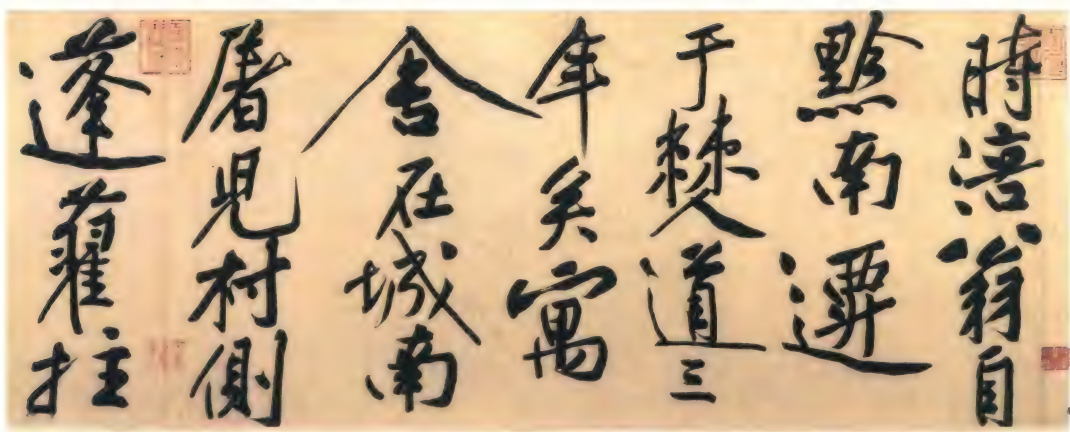 時涪翁自
黔南遷
于僰道三
年矣寓
舍在城南
屠児村側
蓬藋拄